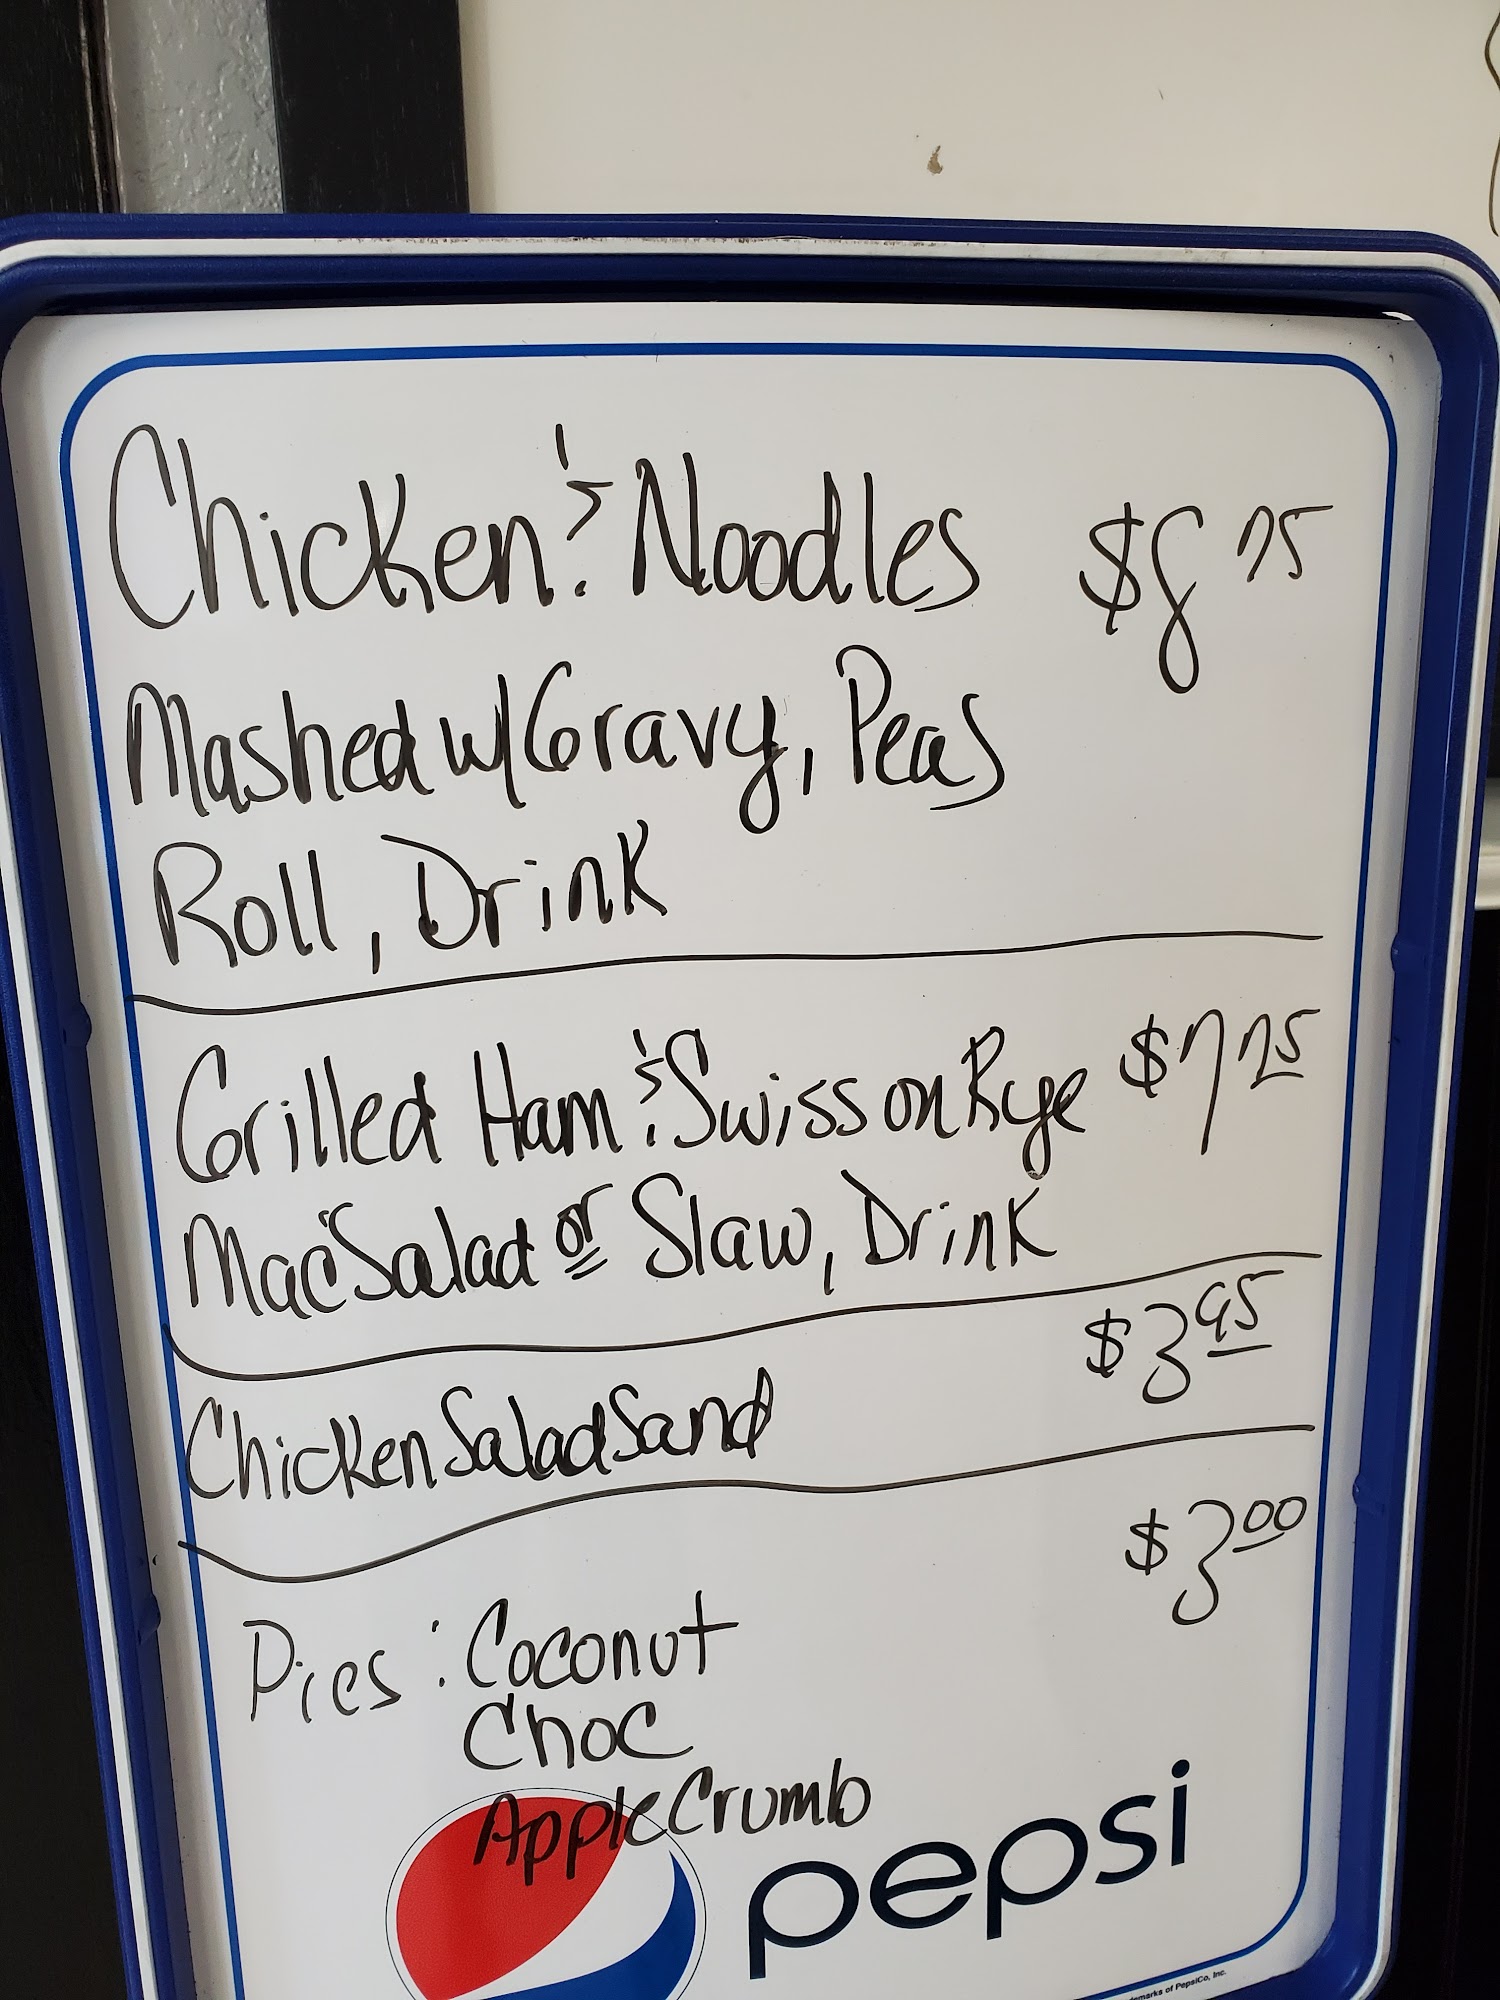 Chicken & Noodles $8 75
Mashed w/Gravy, Peas
Roll, Drink
Grilled Ham & Swiss on Rye $7 25
Mac Salad or Slaw, Drink
$3 95
Chicken Salad Sand
$3 00
Pies: Coconut
Choc
Apple Crumb
pepsi
emarks of PepsiCo, Inc.